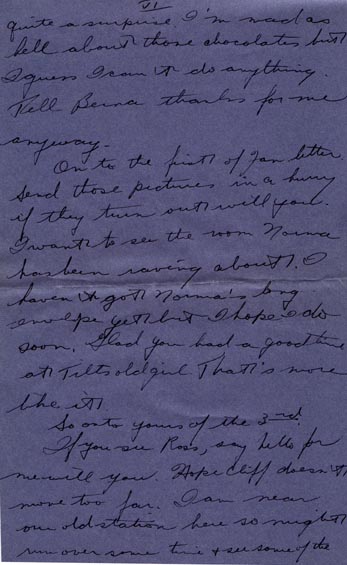 VI
quite a surprise. I'm mad as
hell about those chocolates but
I guess I can't do anything.
Tell Berna thanks for me
anyway.
On to the first of Jan letter.
Send those pictures in a hurry
if they turn out will you.
I want to see the room Norma
has been raving about. I
haven't got Norma's long
envelpe yet but I hope to do
soon. Glad you had a good time
at Tilts old girl. That's more
like it.
So onto yours of the 3rd.
If you see Ross, say hello for
me will you. Hope Cliff doesn't
move too far. I am near
our old station here so might
run over some time + see some of the